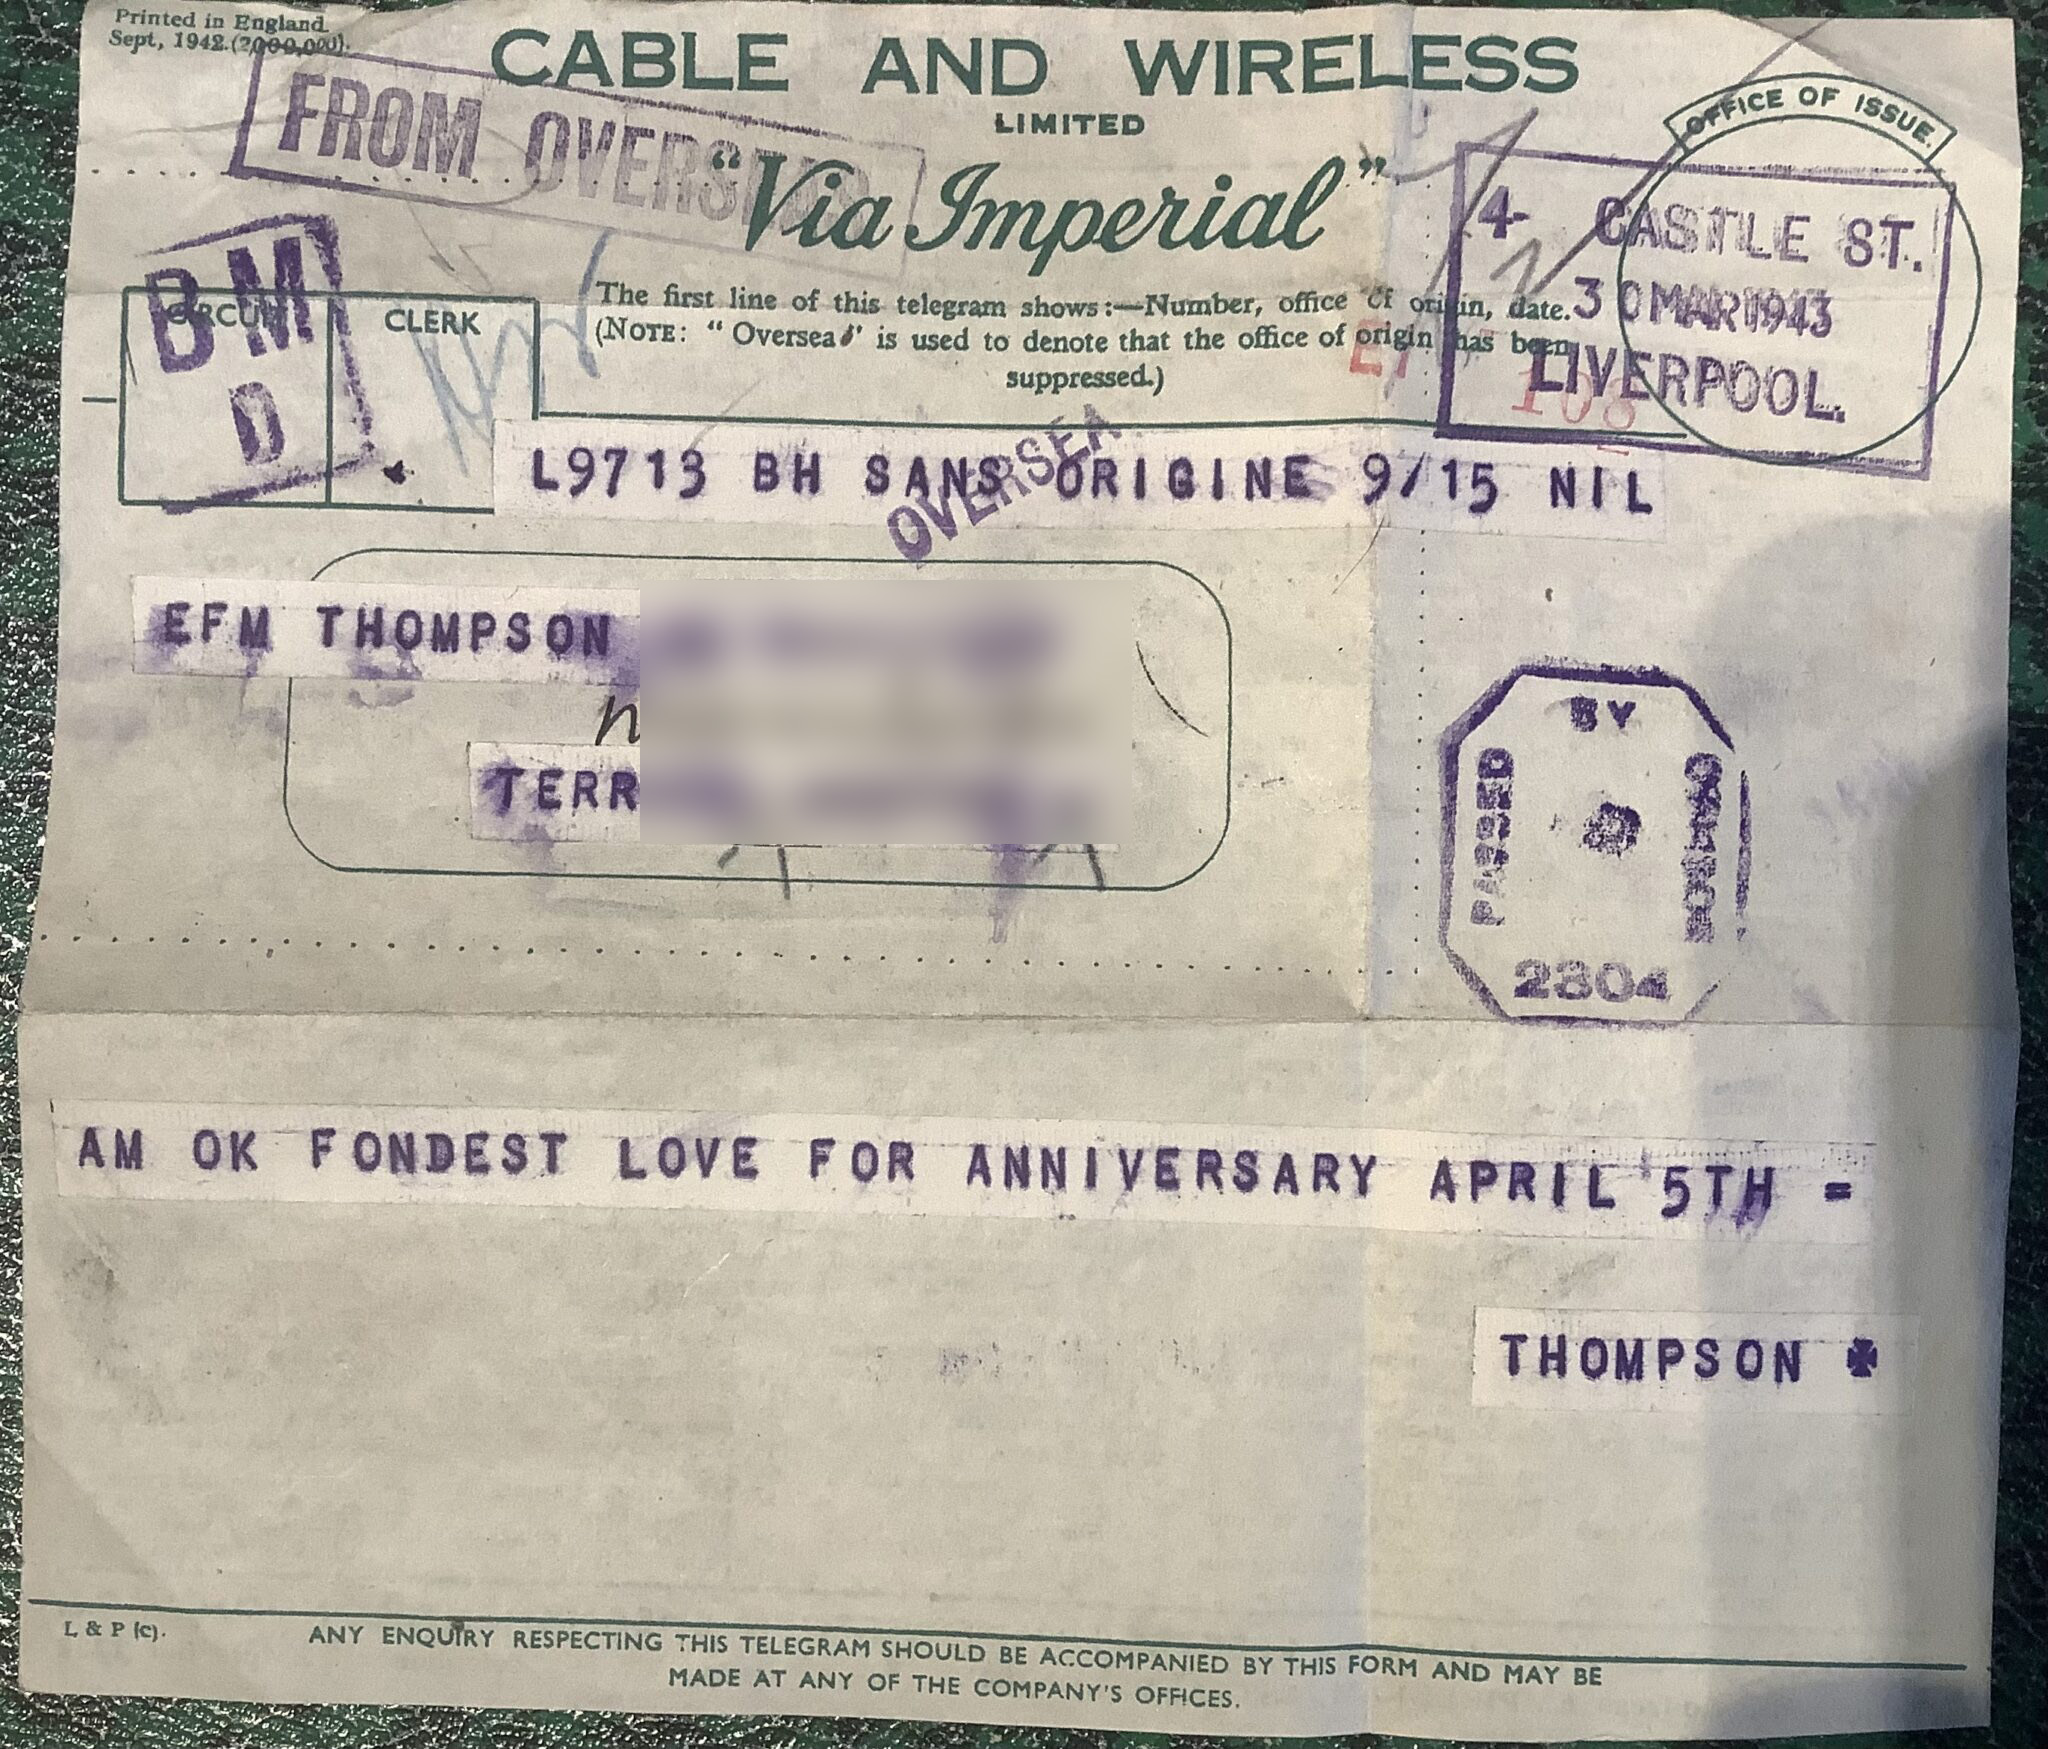 Printed in England
Sept, 1942.(2,000,000).
CABLE AND WIRELESS
LIMITED
"Via Imperial"
FROM OVERSEAS
OFFICE OF ISSUE.
4 CASTLE ST.
30 MAR 1943
LIVERPOOL.
BM
D
CIRCUIT
CLERK
The first line of this telegram shows:—Number, office of origin, date.
(NOTE: "Oversea" is used to denote that the office of origin has been
suppressed.)
108
OVERSEA
L9713 BH SANS ORIGINE 9/15 NIL
EFM THOMPSON
TERR
PASSED BY CENSOR
2304
AM OK FONDEST LOVE FOR ANNIVERSARY APRIL 5TH =
THOMPSON
L & P (c).
ANY ENQUIRY RESPECTING THIS TELEGRAM SHOULD BE ACCOMPANIED BY THIS FORM AND MAY BE
MADE AT ANY OF THE COMPANY'S OFFICES.